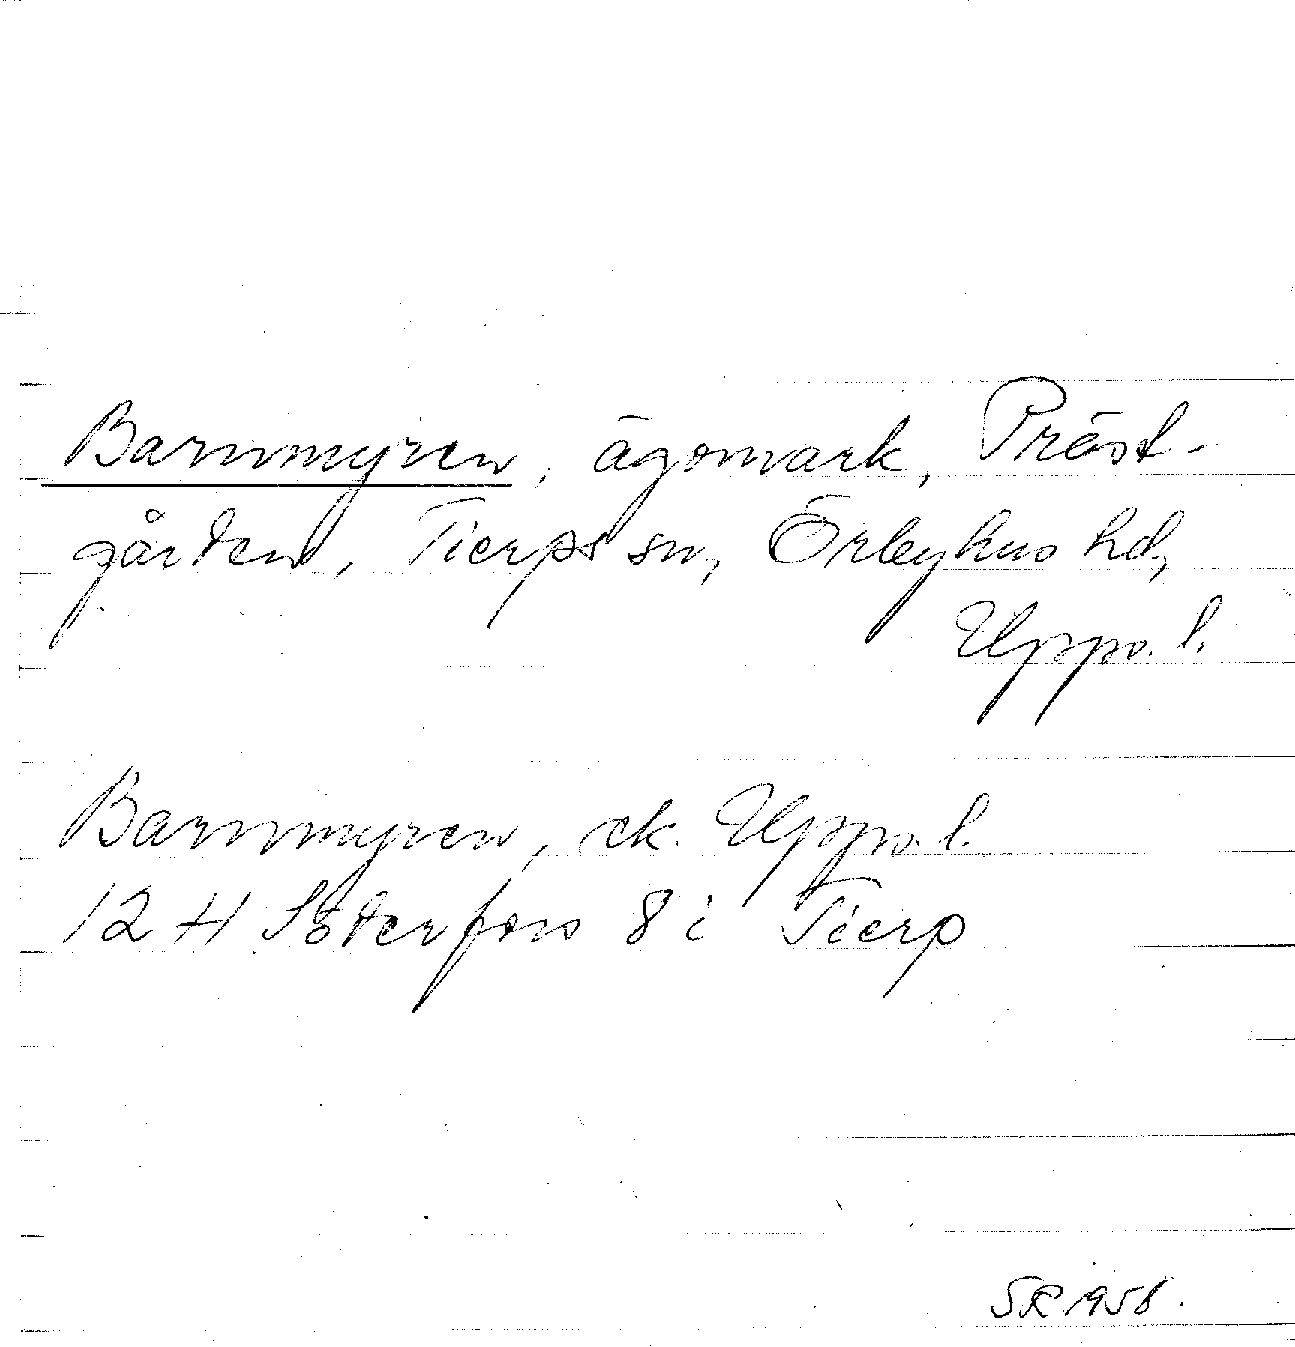 Barnmyren, ägomark, Präst-
gården, Tierps sn, Örbyhus hd,
Upps. l.
Barnmyren, ek. Upps. l.
12 H Söderfors 8 i Tierp
SR 1958.